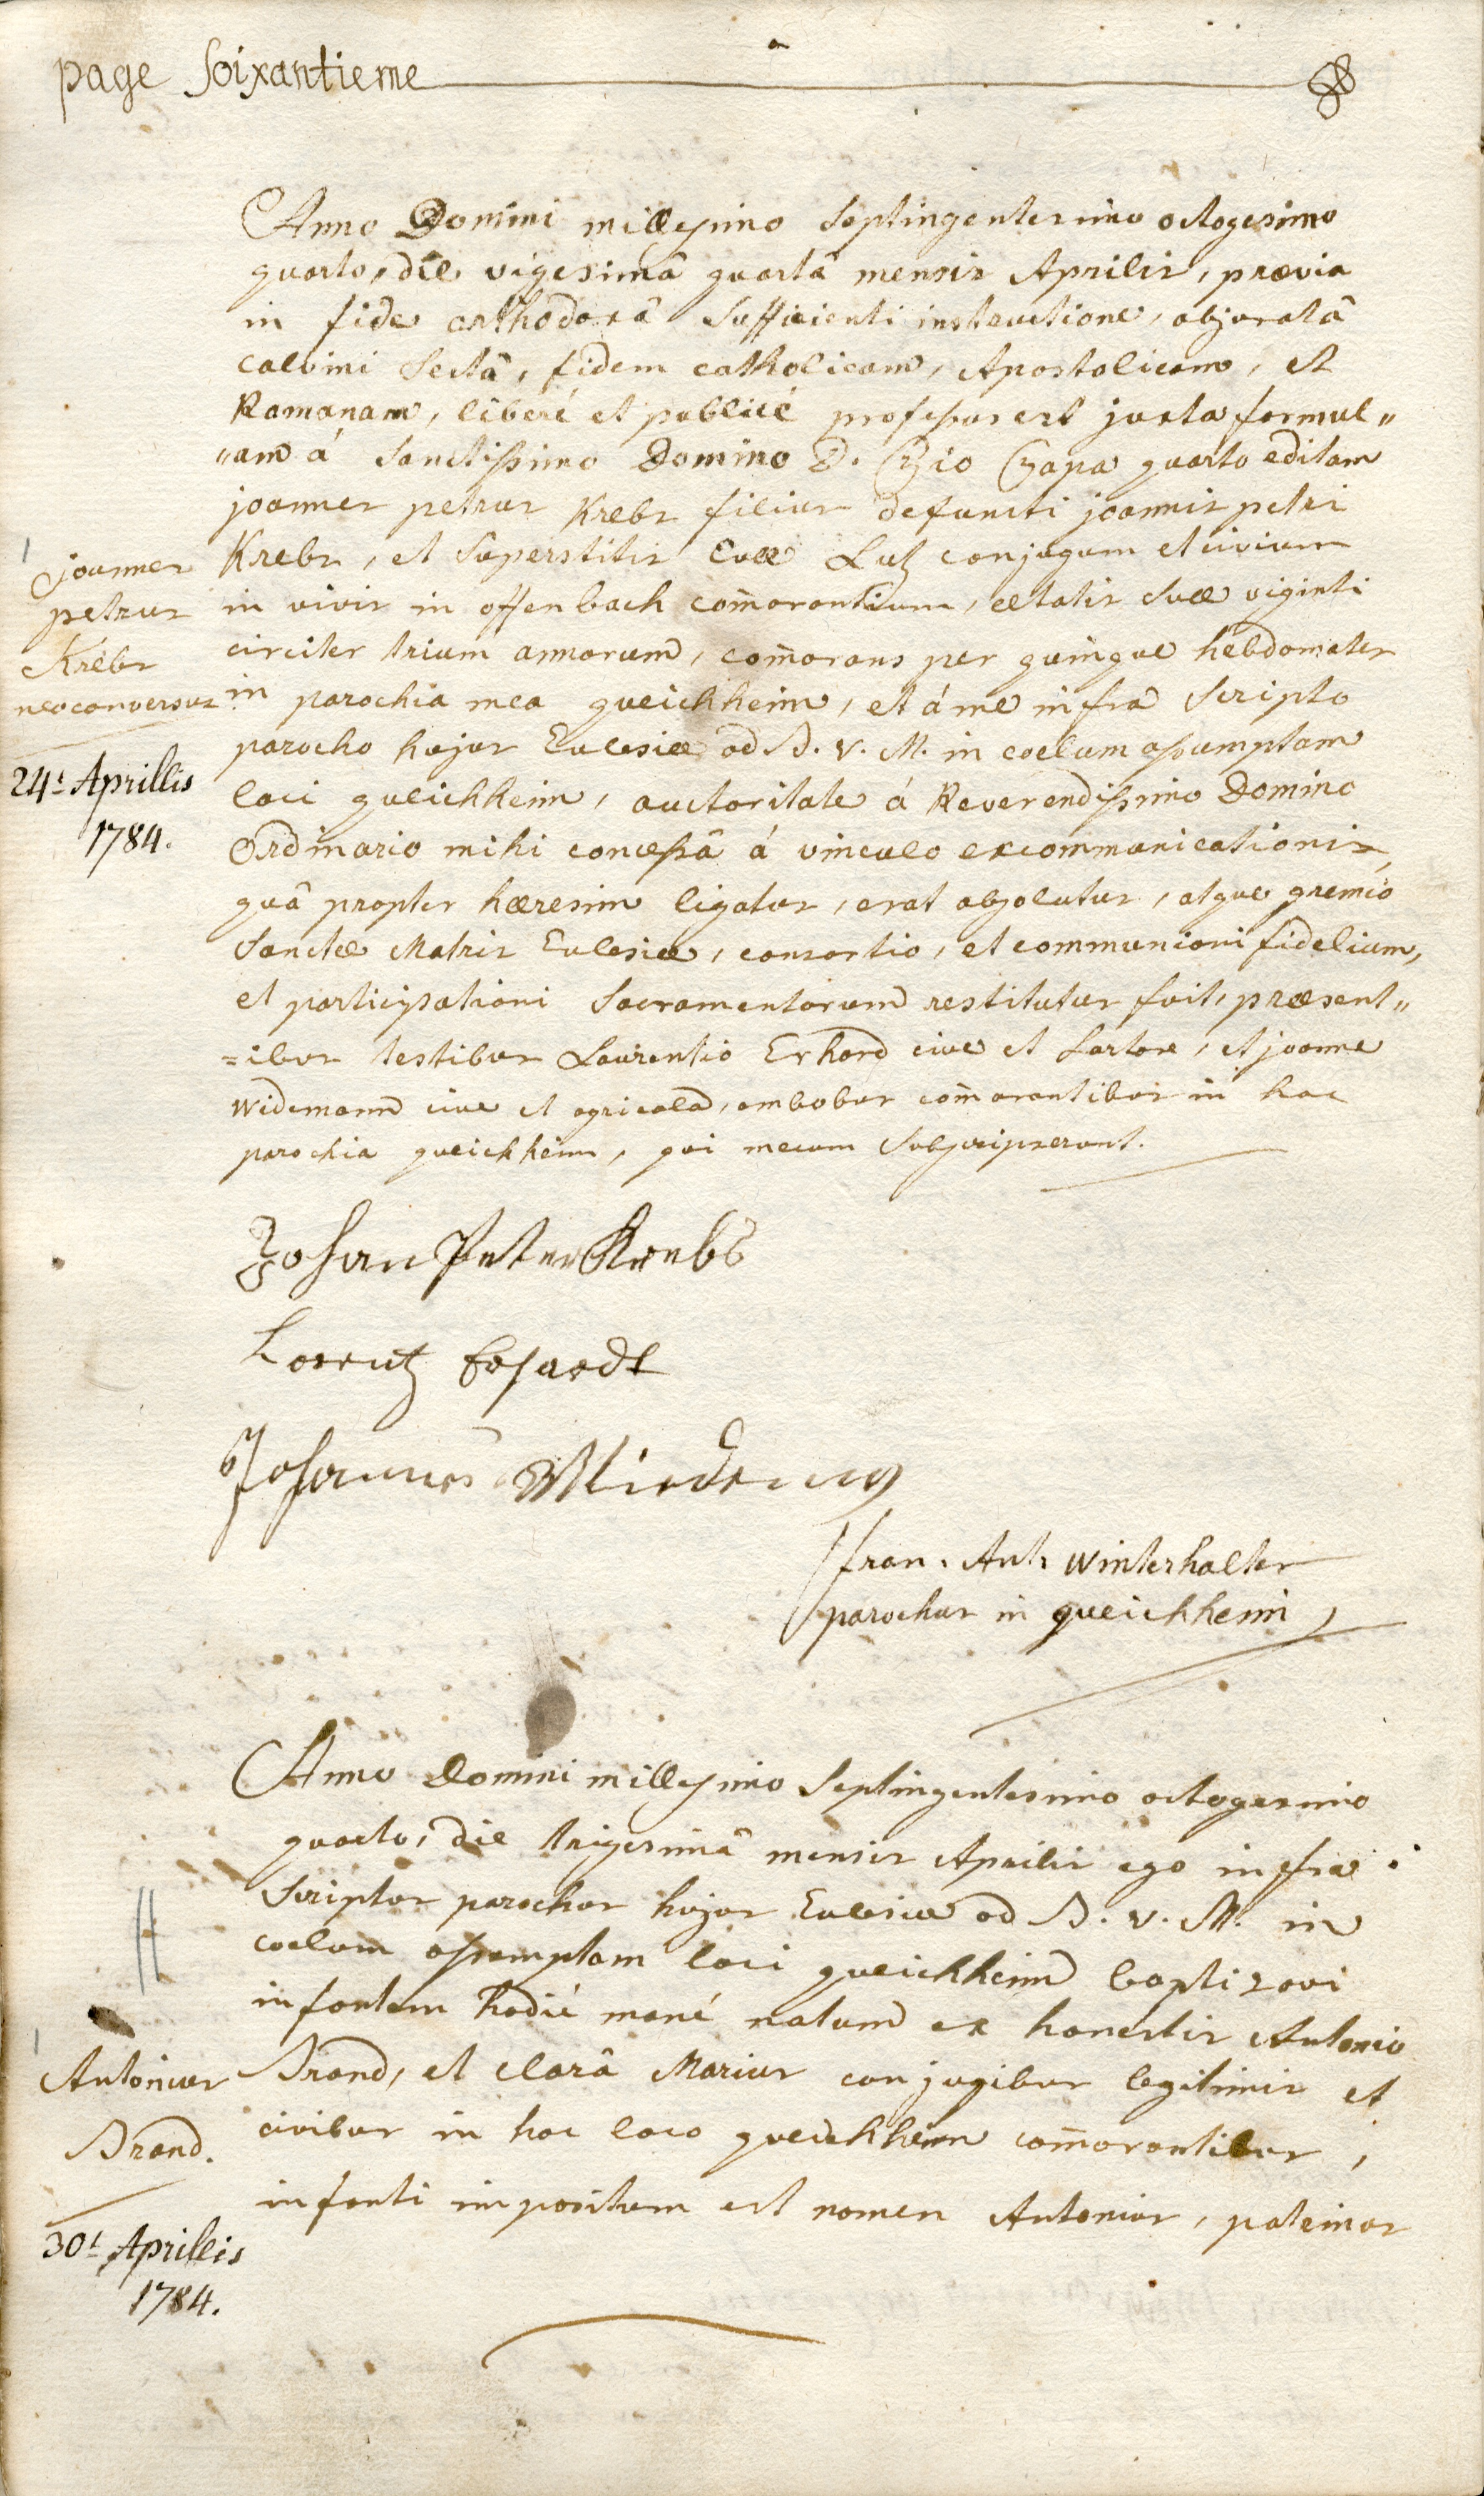 page Soixantieme
Anno Domini millesimo Septingentesimo octogesimo
quarto, die vigesimâ quartâ mensis Aprilis, prævia
in fide orthodoxâ Sufficienti instructione, abjuratâ
Calvini Sectâ, fidem catholicam, Apostolicam, et
Romanam, liberé et publicé professus est juxta formul„
„am á Sanctissimo Domino D. Pio Papa quarto editam
joannes petrus Krebs filius defuncti joannis petri
Krebs, et Superstitis Evæ Lutz conjugum et civium
in vivis in offenbach com̄orantium, ætatis Suæ viginti
circiter trium annorum, com̄orans per quinque hebdomates
in parochia mea queichheim, et á me infra Scripto
parocho hujus Ecclesiæ ad B. V. M. in coelum assumptam
loci queichheim, auctoritate á Reverendissimo Domino
Ordinario mihi concessâ á vinculo excommunicationis,
quâ propter hæresim ligatus, erat absolutus, atque gremio
Sanctæ Matris Ecclesiæ, consortio, et communioni fidelium,
et participationi Sacramentorum restitutus fuit, præsent„
=ibus testibus Laurentio Erhard cive et Sartore, et joanne
Widemann cive et agricola, ambobus com̄orantibus in hac
parochia queichheim, qui mecum Subscripserunt.
joannes
petrus
Krebs
neoconversus
24ᵗ Aprillis
1784.
Johan Peter Krebs
Lorentz Erhardt
Johannes
fran. Ant. Winterhalter
parochus in queichheim
Anno Domini millesimo Septingentesimo octogesimo
quarto, die trigesimâ mensis Aprilis ego infra
Scriptus parochus hujus Ecclesiæ ad B. V. M. in
coelum assumptam loci queichheim baptizavi
infantem hodié mané natum ex honestis Antonio
Brand, et Clarâ Marius conjugibus legitimis et
civibus in hoc loco queichheim com̄orantibus,
infanti impositum est nomen Antonius, patrinus
Antonius
Brand.
30ᵗ Aprillis
1784.